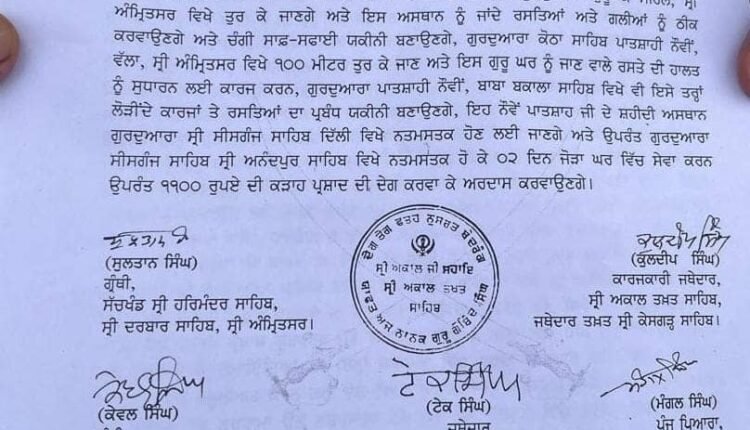 ਅੰਮ੍ਰਿਤਸਰ ਵਿਖੇ ਤੁਰ ਕੇ ਜਾਣਗੇ ਅਤੇ ਇਸ ਅਸਥਾਨ ਨੂੰ ਜਾਂਦੇ ਰਸਤਿਆਂ ਅਤੇ ਗਲੀਆਂ ਨੂੰ ਠੀਕ
ਕਰਵਾਉਣਗੇ ਅਤੇ ਚੰਗੀ ਸਾਫ਼-ਸਫਾਈ ਯਕੀਨੀ ਬਣਾਉਣਗੇ, ਗੁਰਦੁਆਰਾ ਕੋਠਾ ਸਾਹਿਬ ਪਾਤਸ਼ਾਹੀ ਨੌਵੀਂ,
ਵੱਲਾ, ਸ੍ਰੀ ਅੰਮ੍ਰਿਤਸਰ ਵਿਖੇ ੧੦੦ ਮੀਟਰ ਤੁਰ ਕੇ ਜਾਣ ਅਤੇ ਇਸ ਗੁਰੂ ਘਰ ਨੂੰ ਜਾਣ ਵਾਲੇ ਰਸਤੇ ਦੀ ਹਾਲਤ
ਨੂੰ ਸੁਧਾਰਨ ਲਈ ਕਾਰਜ ਕਰਨ, ਗੁਰਦੁਆਰਾ ਪਾਤਸ਼ਾਹੀ ਨੌਵੀਂ, ਬਾਬਾ ਬਕਾਲਾ ਸਾਹਿਬ ਵਿਖੇ ਵੀ ਇਸੇ ਤਰ੍ਹਾਂ
ਲੋੜੀਂਦੇ ਕਾਰਜਾਂ ਤੇ ਰਸਤਿਆਂ ਦਾ ਪ੍ਰਬੰਧ ਯਕੀਨੀ ਬਣਾਉਣਗੇ, ਇਹ ਨੌਵੇਂ ਪਾਤਸ਼ਾਹ ਜੀ ਦੇ ਸ਼ਹੀਦੀ ਅਸਥਾਨ
ਗੁਰਦੁਆਰਾ ਸ੍ਰੀ ਸੀਸਗੰਜ ਸਾਹਿਬ ਦਿੱਲੀ ਵਿਖੇ ਨਤਮਸਤਕ ਹੋਣ ਲਈ ਜਾਣਗੇ ਅਤੇ ਉਪਰੰਤ ਗੁਰਦੁਆਰਾ
ਸੀਸਗੰਜ ਸਾਹਿਬ ਸ੍ਰੀ ਅਨੰਦਪੁਰ ਸਾਹਿਬ ਵਿਖੇ ਨਤਮਸਤਕ ਹੋ ਕੇ ੦੨ ਦਿਨ ਜੋੜਾ ਘਰ ਵਿੱਚ ਸੇਵਾ ਕਰਨ
ਉਪਰੰਤ ੧੧੦੦ ਰੁਪਏ ਦੀ ਕੜਾਹ ਪ੍ਰਸ਼ਾਦ ਦੀ ਦੇਗ ਕਰਵਾ ਕੇ ਅਰਦਾਸ ਕਰਵਾਉਣਗੇ।
(ਸੁਲਤਾਨ ਸਿੰਘ)
ਗ੍ਰੰਥੀ,
ਸੱਚਖੰਡ ਸ੍ਰੀ ਹਰਿਮੰਦਰ ਸਾਹਿਬ,
ਸ੍ਰੀ ਦਰਬਾਰ ਸਾਹਿਬ, ਸ੍ਰੀ ਅੰਮ੍ਰਿਤਸਰ।
ਦੇਗ ਤੇਗ ਫਤਹ ਨੁਸਰਤ ਬੇਦਰੰਗ
ਯਾਫਤ ਅਜ ਨਾਨਕ ਗੁਰੂ ਗੋਬਿੰਦ ਸਿੰਘ
ਸ੍ਰੀ ਅਕਾਲ ਜੀ ਸਹਾਇ
ਸ੍ਰੀ ਅਕਾਲ ਤਖਤ
ਸਾਹਿਬ
ਕੁਲਦੀਪ ਸਿੰਘ
(ਕੁਲਦੀਪ ਸਿੰਘ)
ਕਾਰਜਕਾਰੀ ਜਥੇਦਾਰ,
ਸ੍ਰੀ ਅਕਾਲ ਤਖ਼ਤ ਸਾਹਿਬ,
ਜਥੇਦਾਰ ਤਖ਼ਤ ਸ੍ਰੀ ਕੇਸਗੜ੍ਹ ਸਾਹਿਬ।
ਕੇਵਲ ਸਿੰਘ
(ਕੇਵਲ ਸਿੰਘ)
ਟੇਕ ਸਿੰਘ
(ਟੇਕ ਸਿੰਘ)
ਜਥੇਦਾਰ
(ਮੰਗਲ ਸਿੰਘ)
ਪੰਜ ਪਿਆਰਾ,